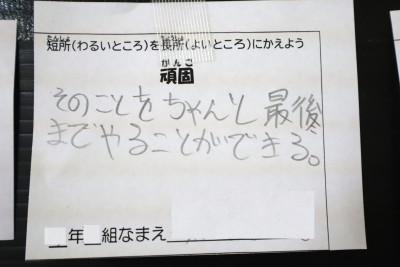 短所(わるいところ)を長所(よいところ)にかえよう
頑固
そのことをちゃんと最後
までやることができる。
年 組なまえ